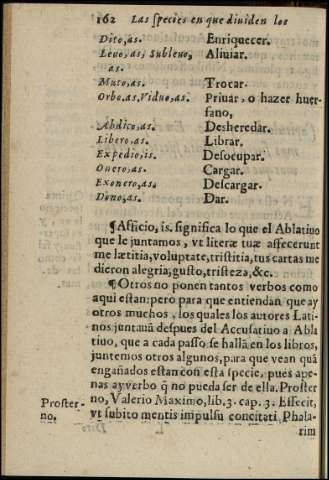 162 Las species en que diuiden los
Dito, as. Enriquecer.
Leuo, as, Subleuo, Aliuiar.
as.
Muto, as. Trocar.
Orbo. as. Viduo, as. Priuar, o hazer huer-
fano,
Abdico, as. Desheredar.
Libero, as. Librar.
Expedio, is. Desocupar.
Onero, as. Cargar.
Exonero, as. Descargar.
Dono, as. Dar.
¶Afficio, is. significa lo que el Ablatiuo
que le juntamos, vt literæ tuæ affecerunt
me lætitia, voluptate, tristitia, tus cartas me
dieron alegria, gusto, tristeza, &c.
¶Otros no ponen tantos verbos como
aqui estan: pero para que entiendan que ay
otros muchos, los quales los autores Lati-
nos juntauã despues del Accusatiuo a Abla
tiuo, que a cada passo se hallã en los libros,
juntemos otros algunos, para que vean quã
engañados estan con esta specie, pues ape-
nas ay verbo q̃ no pueda ser de ella. Proster
Proster-
no.
no, Valerio Maximo, lib. 3. cap. 3. Effecit,
vt subito mentis impulsu concitati, Phala-
rim